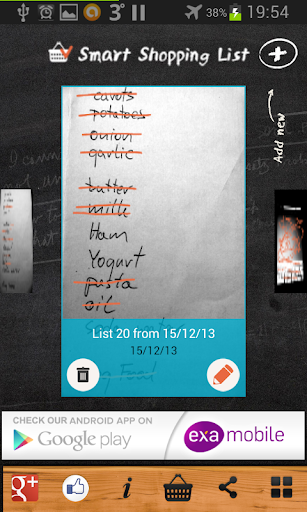 3°
38%
19:54
Smart Shopping List
Add new
carots
potatoes
onion
garlic
butter
milk
Ham
Yogurt
pasta
oil
List 20 from 15/12/13
15/12/13
Food
CHECK OUR ANDROID APP ON
Google play
exa mobile
g+1
i